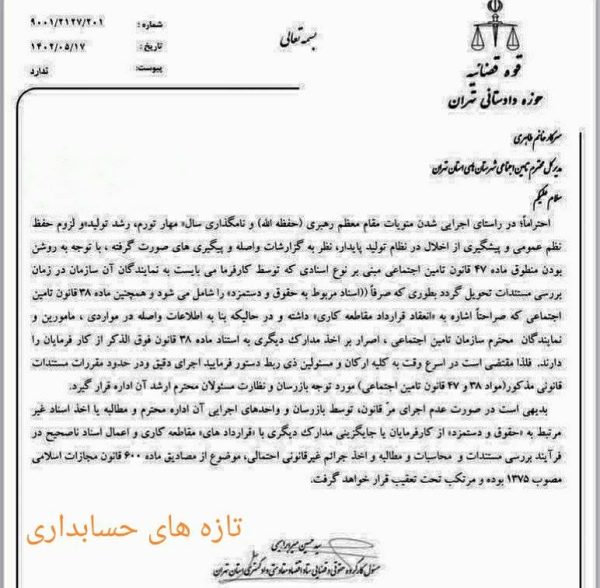 شماره : ۹۰۰۱/۲۱۲۷/۲۰۱
تاریخ : ۱۴۰۲/۰۵/۱۷
پیوست: ندارد
بسمه تعالی
قوه قضائیه
حوزه دادستانی تهران
سرکار خانم طاهری
مدیر کل محترم تامین اجتماعی شهرستان های استان تهران
سلام علیکم
احتراماً؛ در راستای اجرایی شدن منویات مقام معظم رهبری (حفظه الله) و نامگذاری سال» مهار تورم، رشد تولید»و لزوم حفظ
نظم عمومی و پیشگیری از اخلال در نظام تولید پایدار، نظر به گزارشات واصله و پیگیری های صورت گرفته ، با توجه به روشن
بودن منطوق ماده ۴۷ قانون تامین اجتماعی مبنی بر نوع اسنادی که توسط کارفرما می بایست به نمایندگان آن سازمان در زمان
بررسی مستندات تحویل گردد بطوری که صرفاً ((اسناد مربوط به حقوق و دستمزد» را شامل می شود و همچنین ماده ۳۸ قانون تامین
اجتماعی که صراحتاً اشاره به «انعقاد قرارداد مقاطعه کاری» داشته و در حالیکه بنا به اطلاعات واصله در مواردی ، مامورین و
نمایندگان محترم سازمان تامین اجتماعی ، اصرار بر اخذ مدارک دیگری به استناد ماده ۳۸ قانون فوق الذکر از کار فرمایان را
دارند. فلذا مقتضی است در اسرع وقت به کلیه ارکان و مسئولین ذی ربط دستور فرمایید اجرای دقیق ودر حدود مقررات مستندات
قانونی مذکور(مواد ۳۸ و ۴۷ قانون تامین اجتماعی) مورد توجه بازرسان و نظارت مسئولان محترم ارشد آن اداره قرار گیرد.
بدیهی است در صورت عدم اجرای مرّ قانون، توسط بازرسان و واحدهای اجرایی آن اداره محترم و مطالبه یا اخذ اسناد غیر
مرتبط به «حقوق و دستمزد» از کارفرمایان یا جایگزینی مدارک دیگری با «قرارداد های» مقاطعه کاری و اعمال اسناد ناصحیح در
فرآیند بررسی مستندات و محاسبات و مطالبه و اخذ جرائم غیرقانونی احتمالی، موضوع از مصادیق ماده ۶۰۰ قانون مجازات اسلامی
مصوب ۱۳۷۵ بوده و مرتکب تحت تعقیب قرار خواهد گرفت.
تازه های حسابداری
سید حسین میر ابراهیمی
مسئول کارگروه حقوقی و قضایی ستاد اقتصاد مقاومتی دادگستری استان تهران